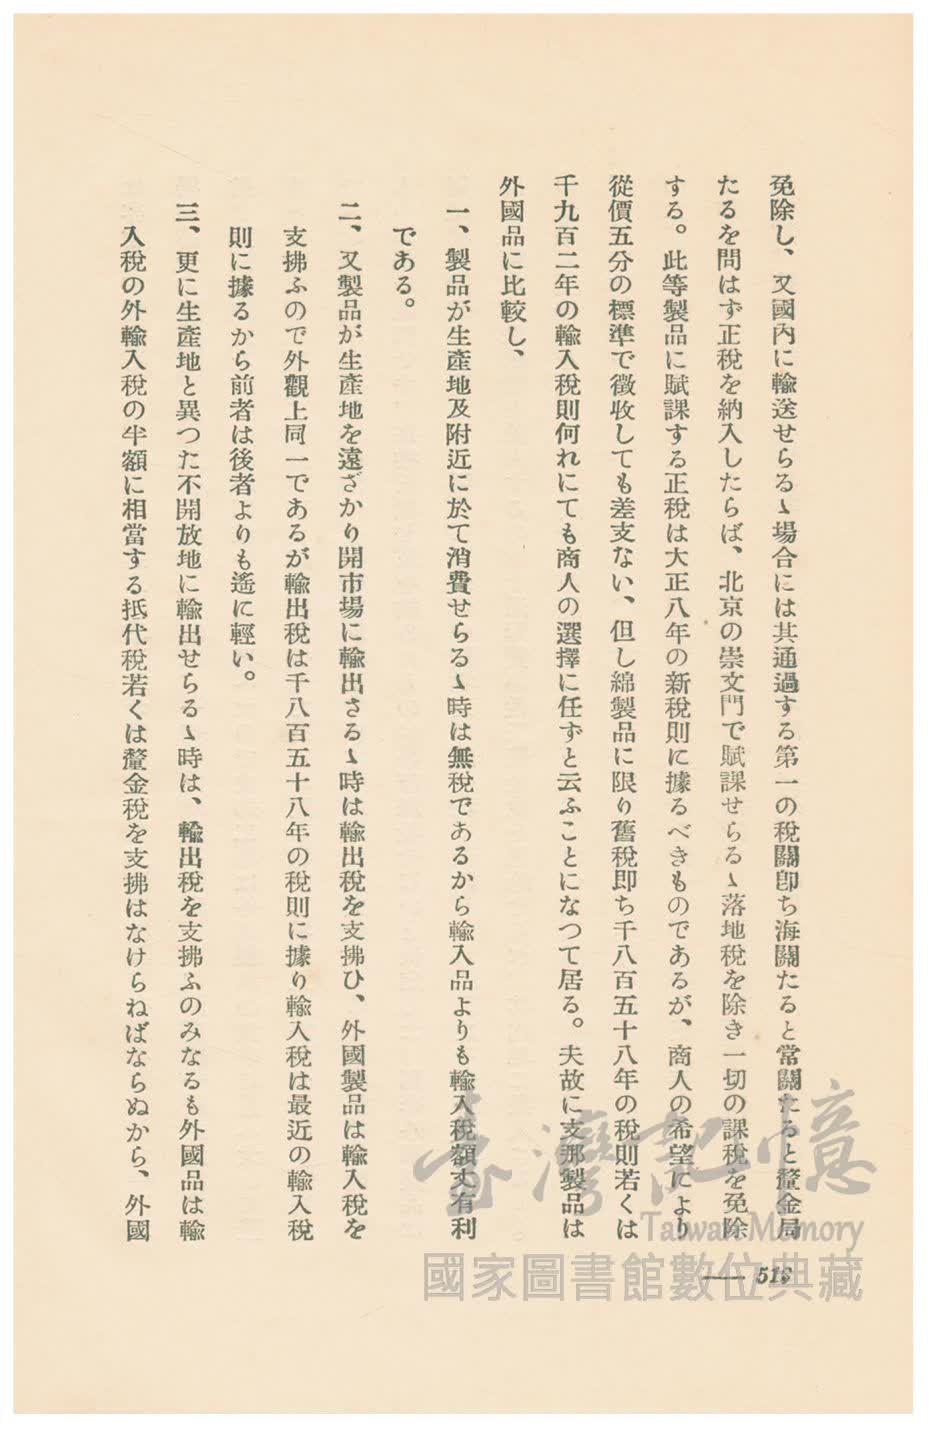 免除し、又國內に輸送せらるゝ場合には其通過する第一の稅關卽ち海關たると常關たると釐金局
たるを問はず正稅を納入したらば、北京の崇文門で賦課せらるゝ落地稅を除き一切の課稅を免除
する。此等製品に賦課する正稅は大正八年の新稅則に據るべきものであるが、商人の希望により
從價五分の標準で徵收しても差支ない、但し綿製品に限り舊稅卽ち千八百五十八年の稅則若くは
千九百二年の輸入稅則何れにても商人の選擇に任ずと云ふことになつて居る。夫故に支那製品は
外國品に比較し、
一、製品が生產地及附近に於て消費せらるゝ時は無稅であるから輸入品よりも輸入稅額丈有利
である。
二、又製品が生產地を遠ざかり開市場に輸出さるゝ時は輸出稅を支拂ひ、外國製品は輸入稅を
支拂ふので外觀上同一であるが輸出稅は千八百五十八年の稅則に據り輸入稅は最近の輸入稅
則に據るから前者は後者よりも遙に輕い。
三、更に生產地と異つた不開放地に輸出せらるゝ時は、輸出稅を支拂ふのみなるも外國品は輸
入稅の外輸入稅の半額に相當する抵代稅若くは釐金稅を支拂はなけらねばならぬから、外國
— 518
臺灣記憶
Taiwan Memory
國家圖書館數位典藏